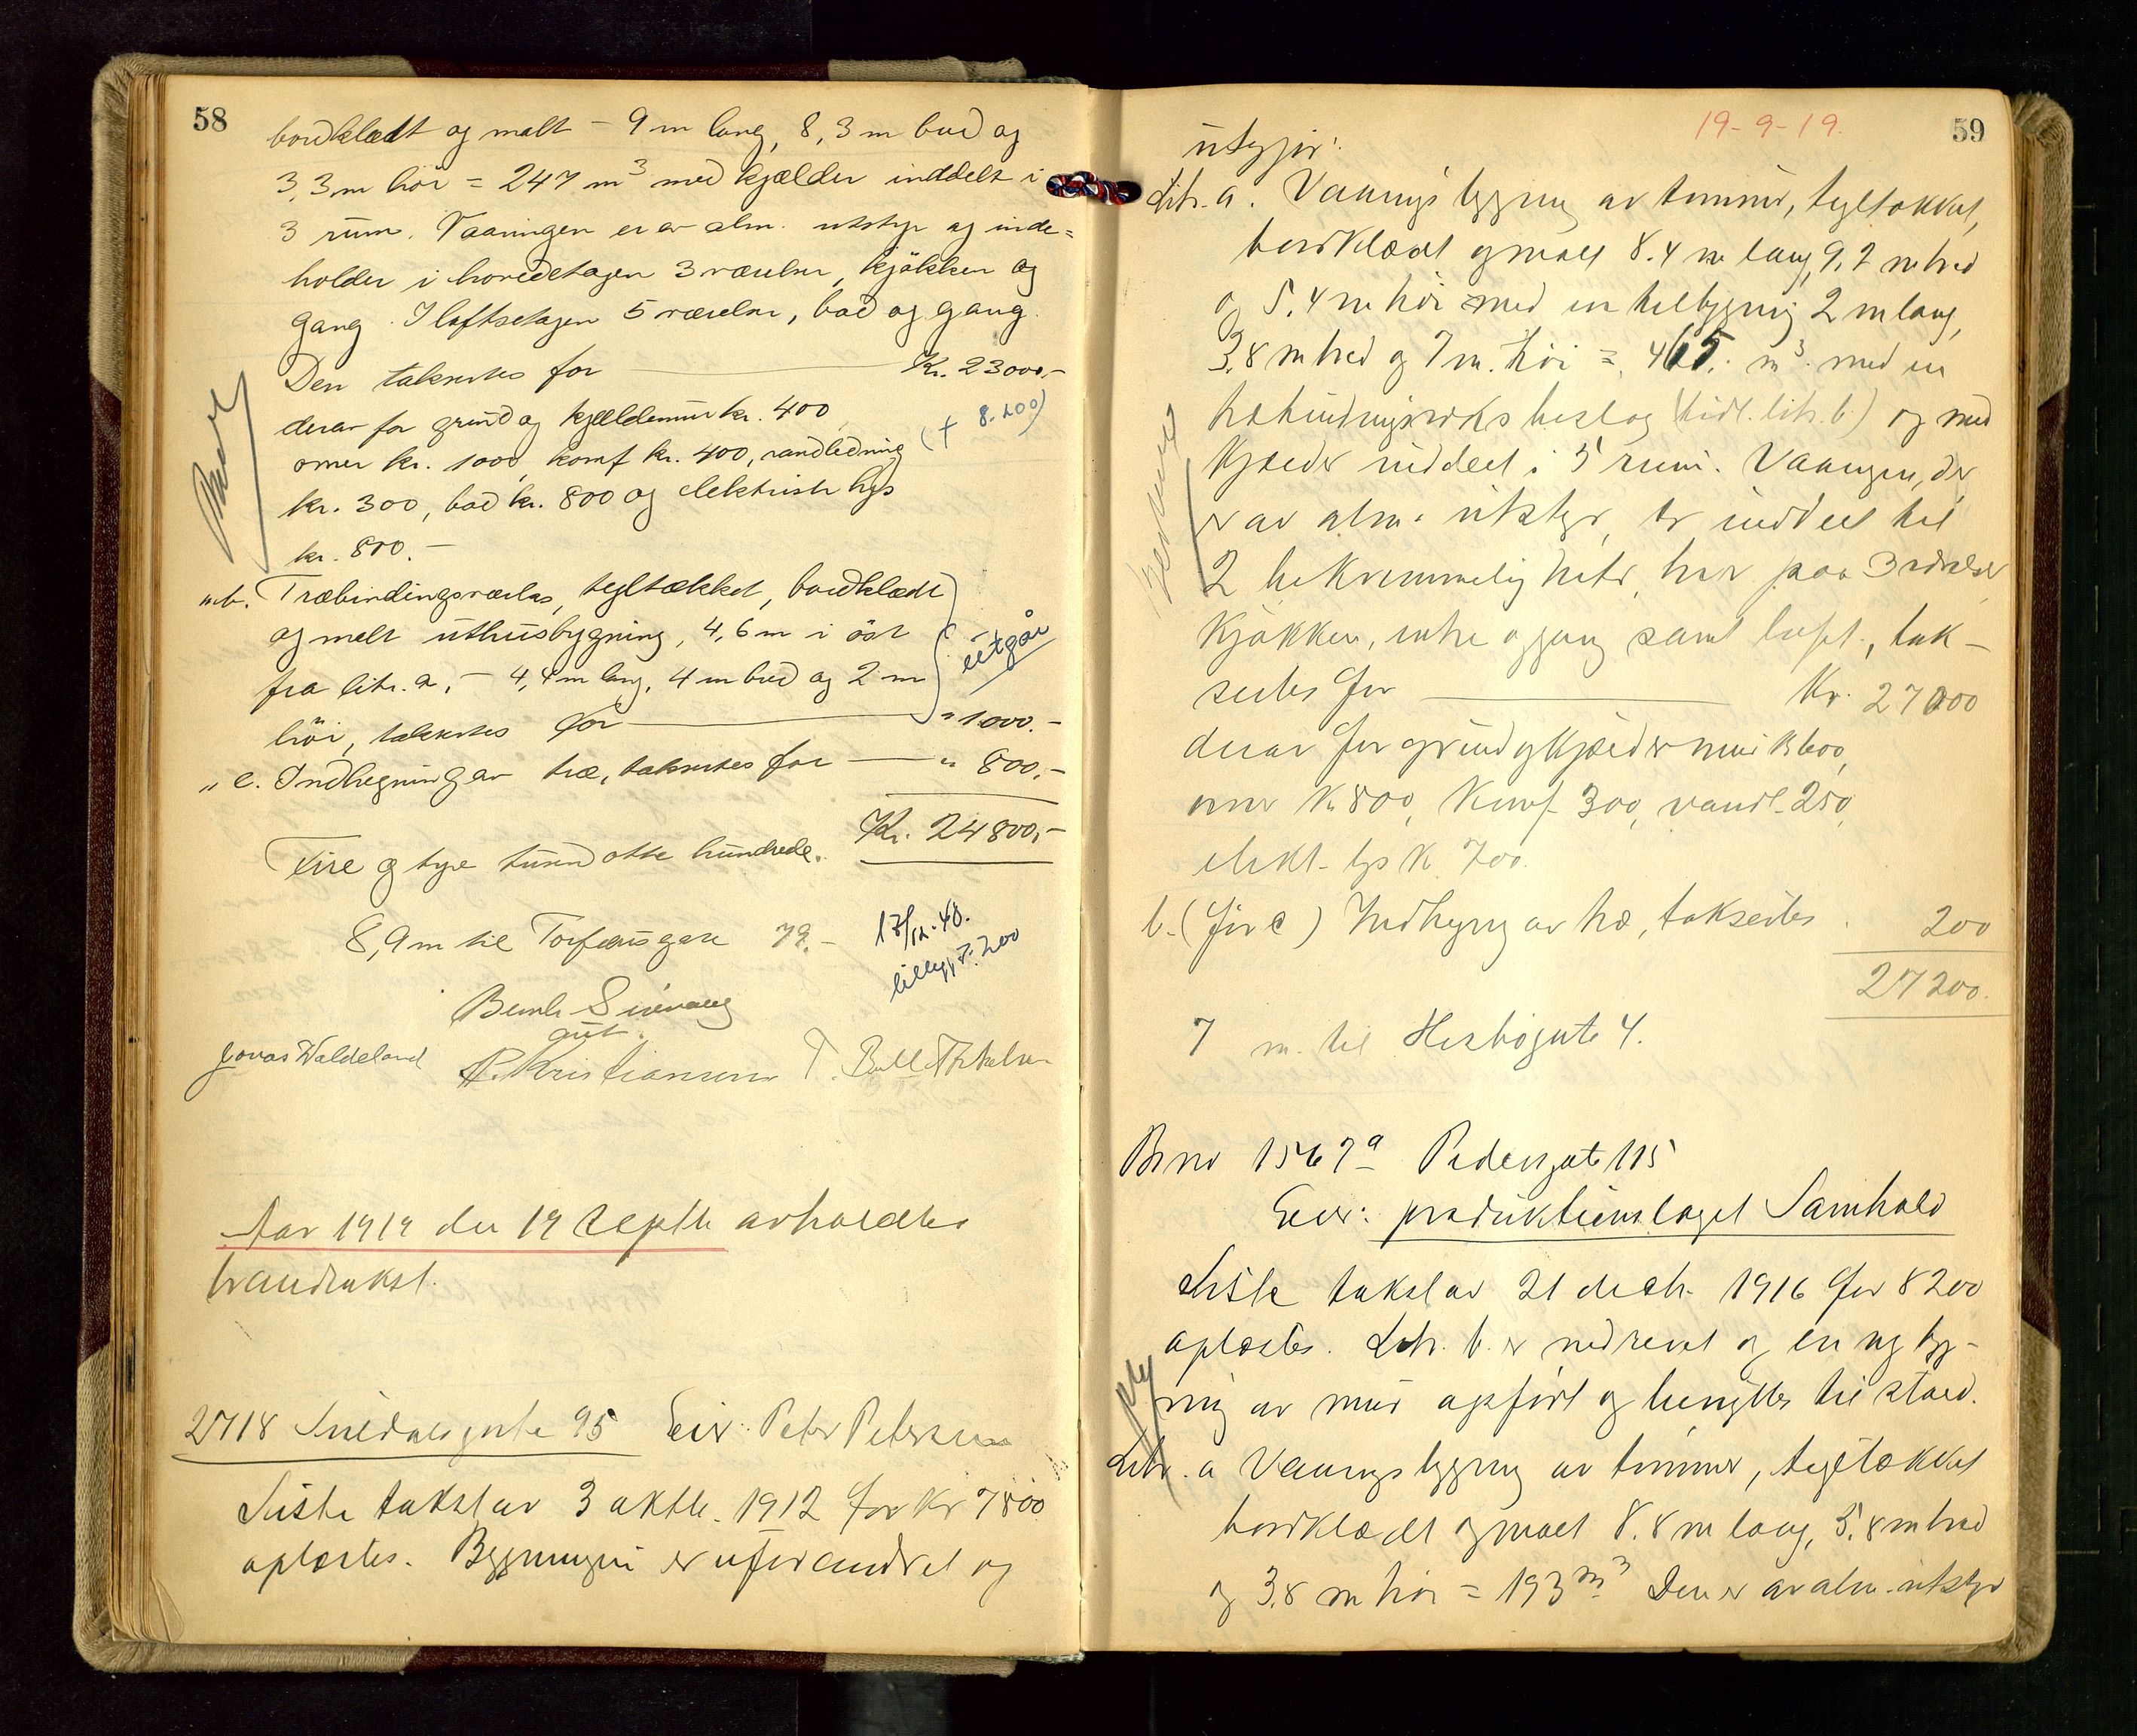 58
bordklædt og malt - 9 m lang, 8,3 m bred og
3,3 m höi = 247 m³ med kjælder inddelt i
3 rum. Vaaningen er av alm. utstyr og inde=
holder i hovedetagen 3 værelser, kjökken og
gang. I loftsetagen 5 værelser, bad og gang.
Den takseres for Kr. 23000,-
derav for grund og kjældermur kr. 400
(+ 8.200)
ovner kr. 1000, komf kr. 400, vandledning
kr. 300, bad kr. 800 og elektrisk lys
kr. 800.-
" b. Træbindingsverks, tegltækket, bordklædt
og malt uthusbygning, 4,6 m i öst
utgår
fra litr. a, - 4,4 m lang, 4 m bred og 2 m
höi, takseres for " 1000.-
" c. Indhegning av træ, takseres for " 800.-
Kr. 24800,-
Fire og tyve tusen otte hundrede.
8,9 m til Torfæusgate 79.-
17/12.48.
tillegg + 200
Jonas Waldeland
P. Kristiansen
Aar 1919 den 19 septb avholdtes
brandtakst.
2718 Suldalsgate 95 Eier: Peter Petersen
Siste takst av 3 oktb. 1912 for Kr 7800
oplæstes. Bygningen er uforandret og
19-9-19.
59
utgjör:
Litr. a. Vaaningsbygning av tømmer, tegltækket,
bordklædt og malt 8.4 m lang, 9,2 m bred
og 5,4 m höi med en tilbygning 2 m lang,
3,8 m bred og 7 m. höi = 465. m³. med en
træbindingsverks beslag (tidl. litr. b.) og med
Kjælder inddelt i 5 rum. Vaaningen, der
er av alm. utstyr, er inddelt til
2 bekvemmeligheter, hver paa 3 værelser
Kjøkken, entre og gang samt loft, tak-
seres for Kr. 27000
derav for grund og Kjældermur K 600,
ovner K. 800, Komf. 300, vandl. 250,
elekt. lys K. 700.
b. (för c) Indhegning av træ, takseres 200
27200.
7 m. til Hesbygate 4.
Br no 1567a Pedersgate 115
Eier: produktionslaget Samhold
Siste takst av 21 decbr. 1916 for 8200
oplæstes. Litr. b. er nedrevet og en ny byg-
ning av mur opfört og benyttes til stald.
Litr. a Vaaningsbygning av tømmer, tegltækket
bordklædt og malt 8.8 m lang, 5.8 m bred
og 3,8 m höi = 193 m³. Den er av alm. utstyr